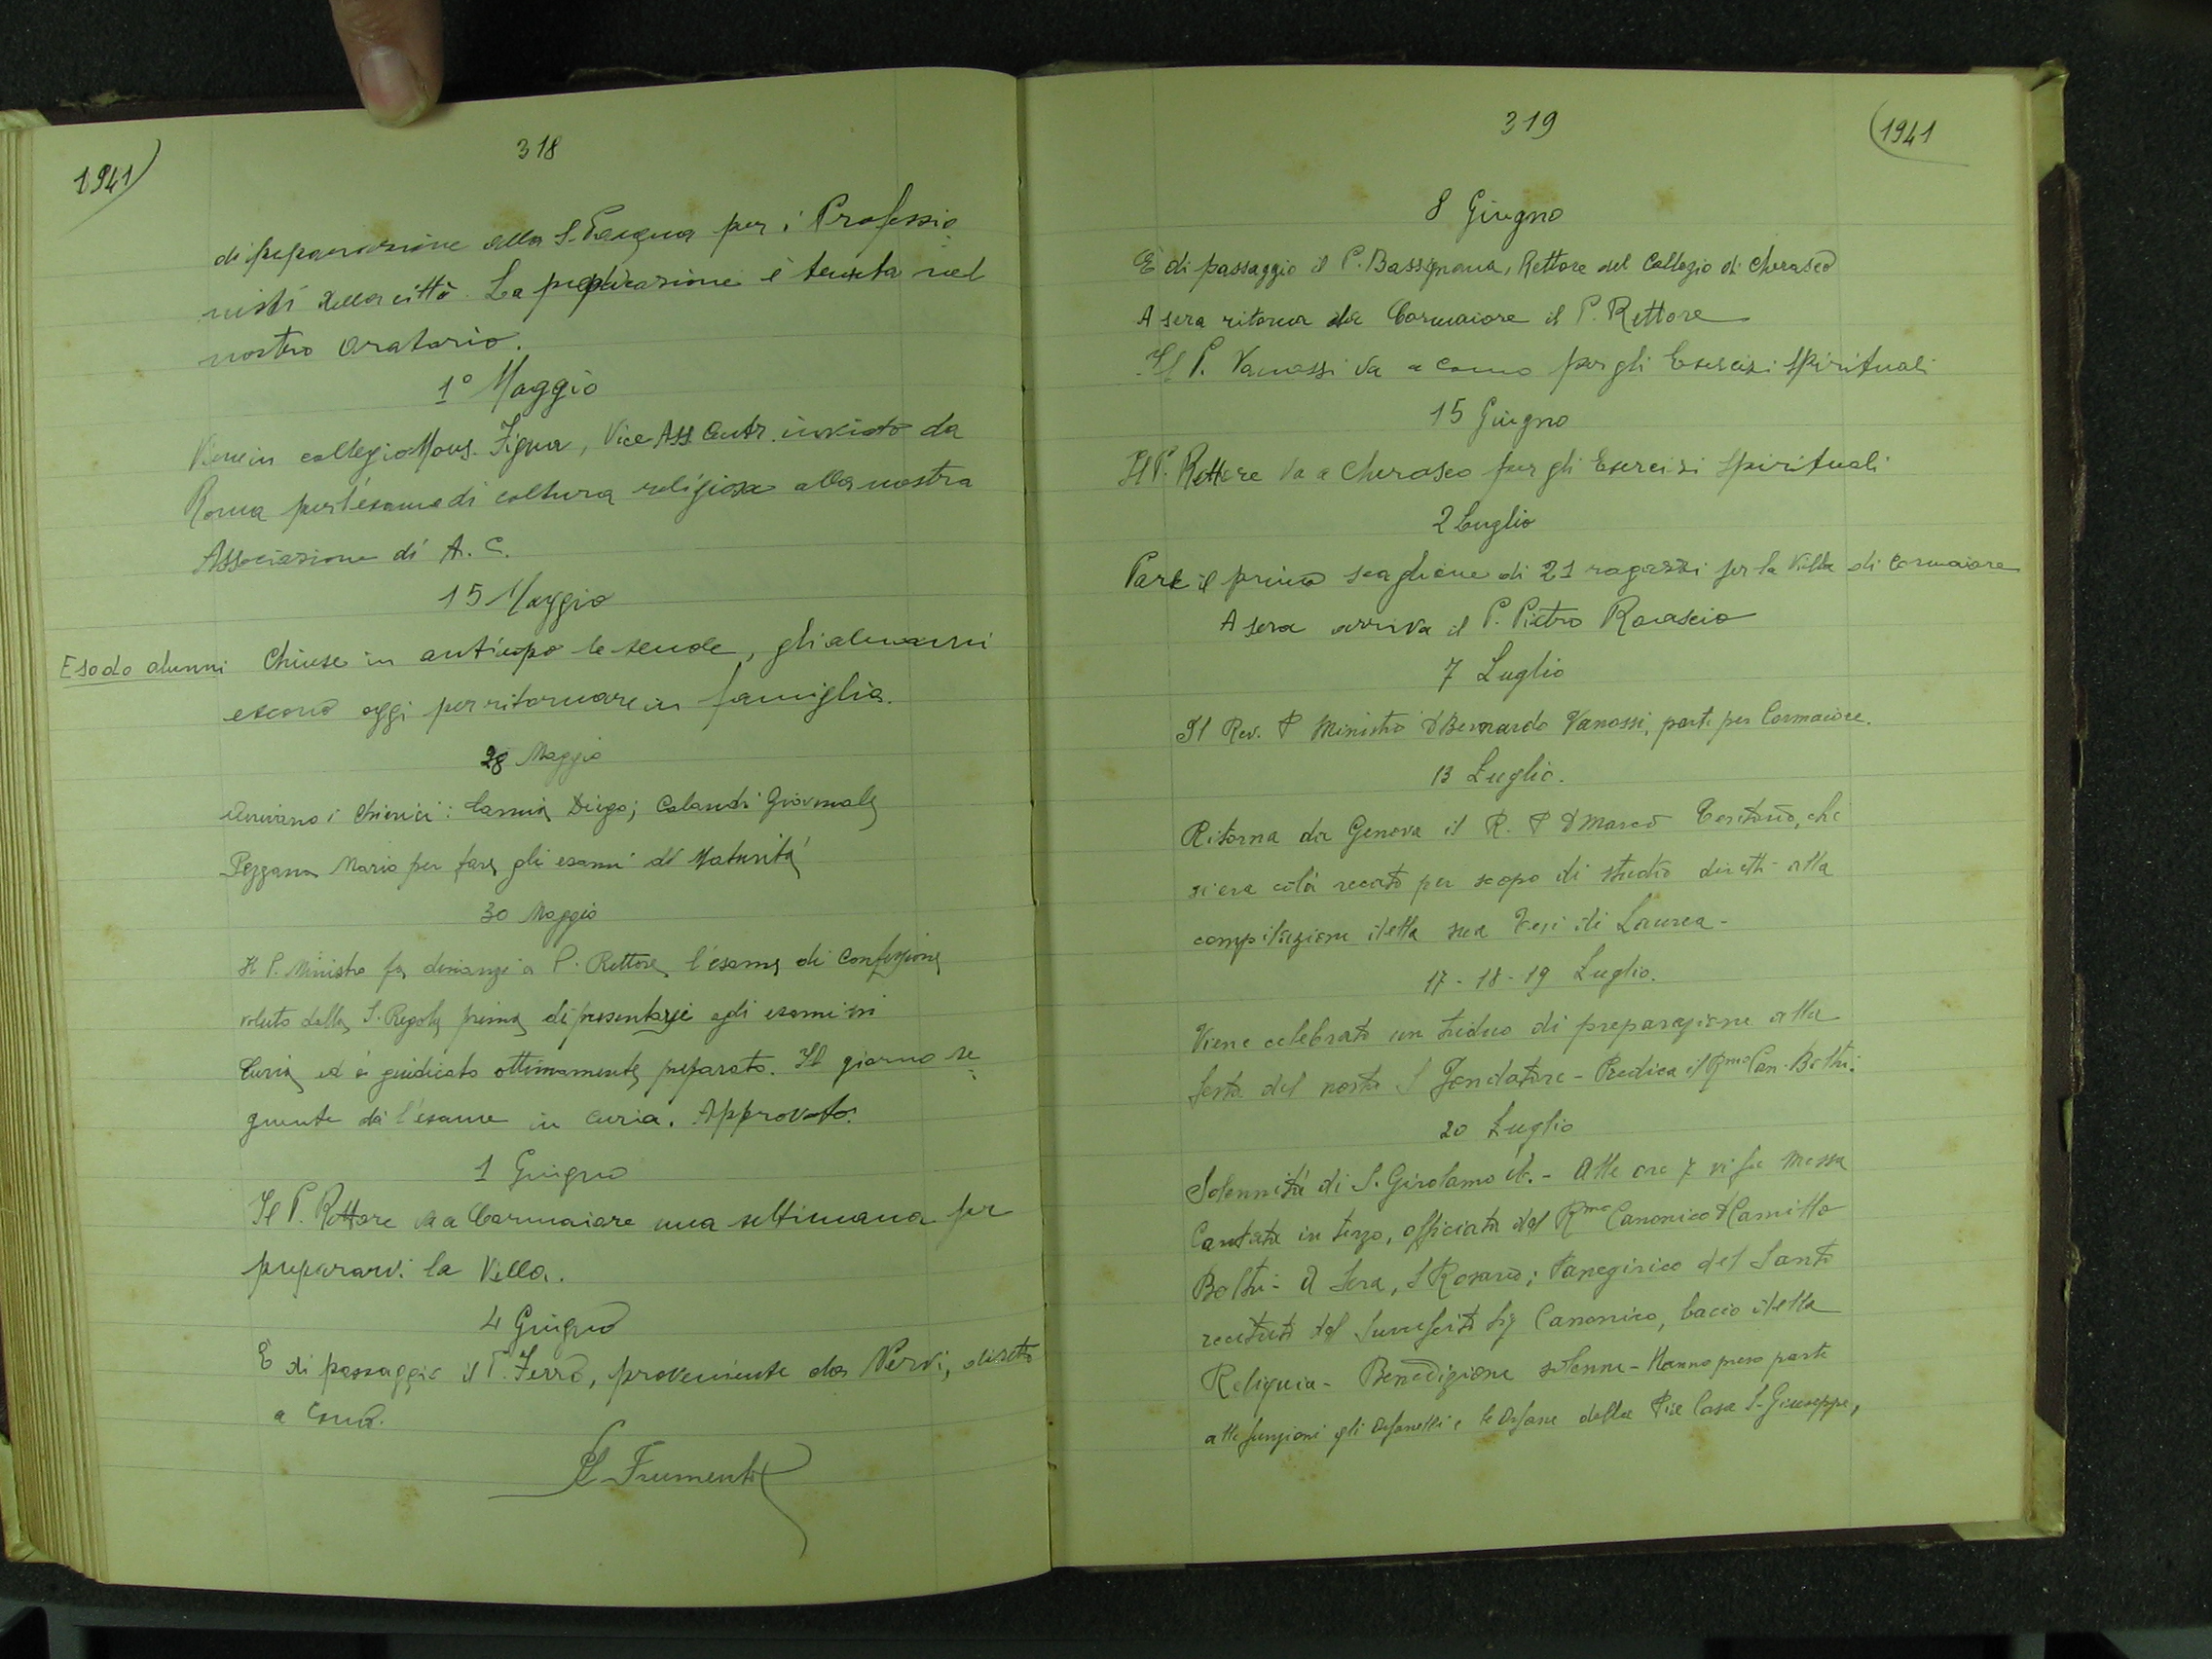 1941
318
di preparazione alla S. Pasqua per i Professio-
nisti della città. La predicazione è tenuta nel
nostro Oratorio.
1º Maggio
Viene in collegio Mons. Zigna, Vice Ass Centr. inviato da
Roma per l'esame di coltura religiosa alla nostra
Associazione di A. C.
15 Maggio
Esodo alunni
Chiuse in anticipo le scuole, gli alunni
escono oggi per ritornare in famiglia.
28 Maggio
Arrivano i Chierici: Camia Diego; Calandri Giovinale
Pezzana Mario per fare gli esami di Maturità
30 Maggio
Il P. Ministro fa dinanzi a P. Rettore l'esame di Confessione
voluto dalla S. Regola prima di presentarsi agli esami in
Curia ed è giudicato ottimamente preparato. Il giorno se-
guente dà l'esame in curia. Approvato.
1 Giugno
Il P. Rettore va a Cormaiore una settimana per
prepararvi la Villa.
4 Giugno
È di passaggio il P. Ferro, proveniente da Nervi, diretto
a Como.
Frumento
319
1941
8 Giugno
È di passaggio il P. Bassignana, Rettore del Collegio di Cherasco
A sera ritorna da Cormaiore il P. Rettore
Il P. Vanossi va a Como per gli Esercizi Spirituali
15 Giugno
Il P. Rettore va a Cherasco per gli Esercizi Spirituali
2 Luglio
Parte il primo scaglione di 21 ragazzi per la Villa di Cormaiore
A sera arriva il P. Pietro Rovascio
7 Luglio
Il Rev. P Ministro D Bernardo Vanossi, parte per Cormaiore.
13 Luglio.
Ritorna da Genova il R. P D Marco Tentorio, che
si era colà recato per scopo di studio diretto alla
compilazione della sua Tesi di Laurea -
17 - 18 - 19 Luglio.
Viene celebrato un triduo di preparazione alla
festa del nostro S Fondatore - Predica il Rmo Can. Boltri.
20 Luglio
Solennità di S. Girolamo Em. - Alle ore 7 vi fu Messa
Cantata in terzo, officiata dal Rmo Canonico D Camillo
Boltri - A Sera, S Rosario; Panegirico del Santo
recitato dal sunnferito Sig Canonico, bacio della
Reliquia - Benedizione solenne - Hanno preso parte
alle funzioni gli Orfanelli e le Orfane della Pia Casa S. Giuseppe,